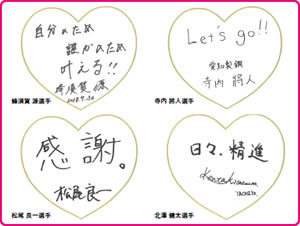 自分のため
誰かのため
叶える!!
蜂須賀 源
2018.7.30
蜂須賀 源選手
Let's go!!
愛知製鋼
寺内 將人
寺内 將人選手
感謝。
松尾良一
松尾 良一選手
日々、精進
北澤 健太選手